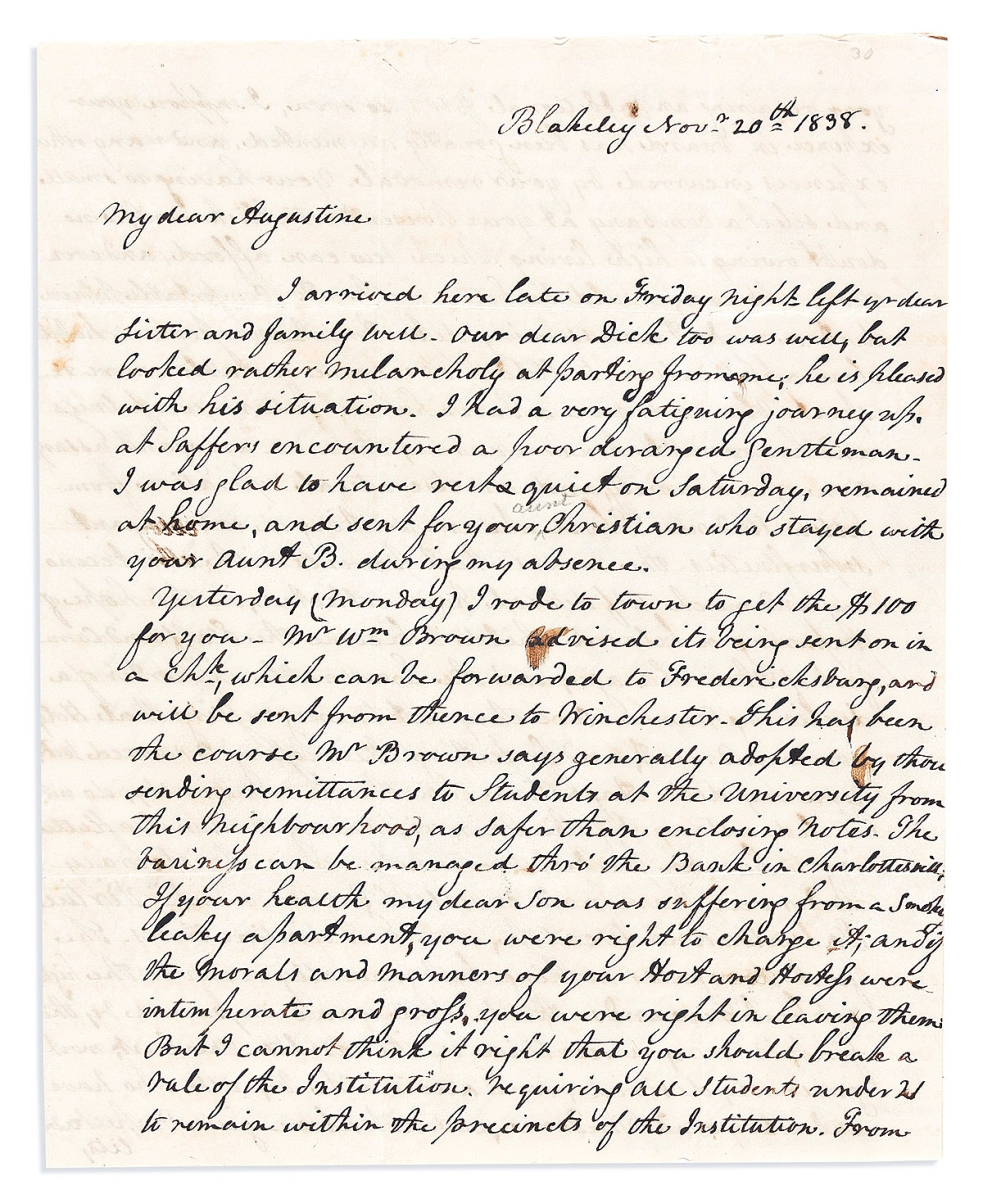 30
Blakeley Novr 20th 1838.
My dear Augustine
I arrived here late on Friday night left yr dear
sister and family well. Our dear Dick too was well, but
looked rather melancholy at parting from me; he is pleased
with his situation. I had a very fatiguing journey up.
at Saffers encountered a poor deranged Gentleman.
I was glad to have rest & quiet on Saturday, remained
at home, and sent for your aunt Christian who stayed with
your Aunt B. during my absence.
Yesterday (Monday) I rode to town to get the $100
for you - Mr Wm Brown advised its being sent on in
a Chk, which can be forwarded to Fredericksburg, and
will be sent from thence to Winchester. This has been
the course Mr Brown says generally adopted by those
sending remittances to Students at the University from
this Neighbourhood, as safer than enclosing Notes. The
business can be managed thro' the Bank in Charlottesville,
If your health my dear Son was suffering from a smoky
leaky apartment, you were right to change it; and if
the morals and manners of your Host and Hostess were
intemperate and gross, you were right in leaving them.
But I cannot think it right that you should break a
rule of the Institution. requiring all Students under 21
to remain within the precincts of the Institution. From